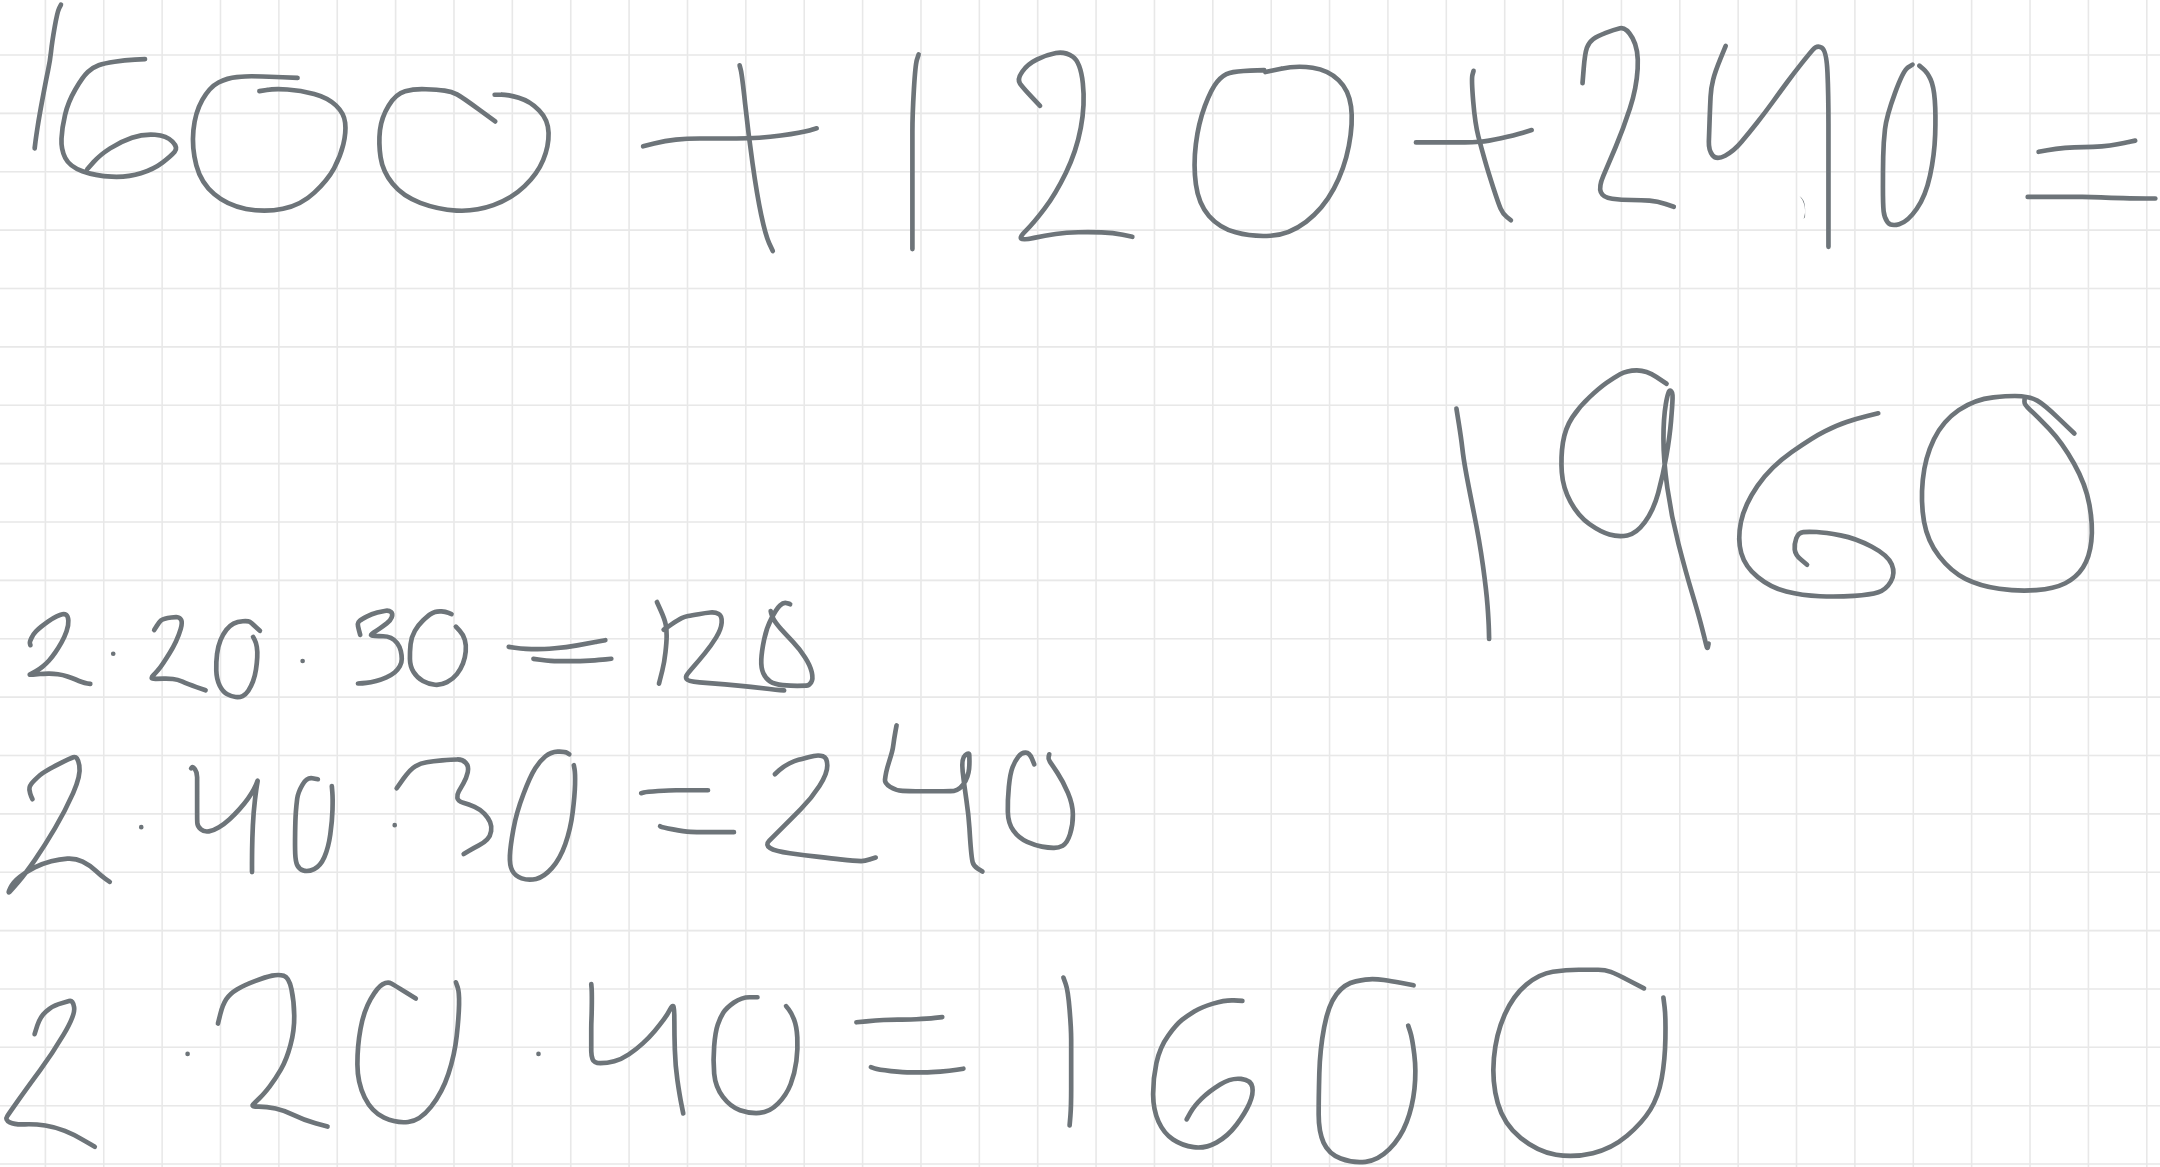 1600 + 120 + 240 =
1960
2 · 20 · 30 = 120
2 · 40 · 30 = 240
2 · 20 · 40 = 1600